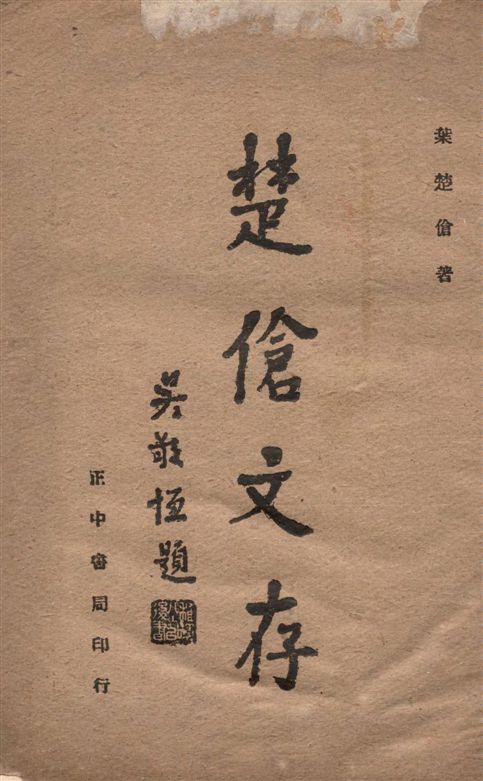 葉楚傖著
楚傖文存
吳敬恆題
正中書局印行